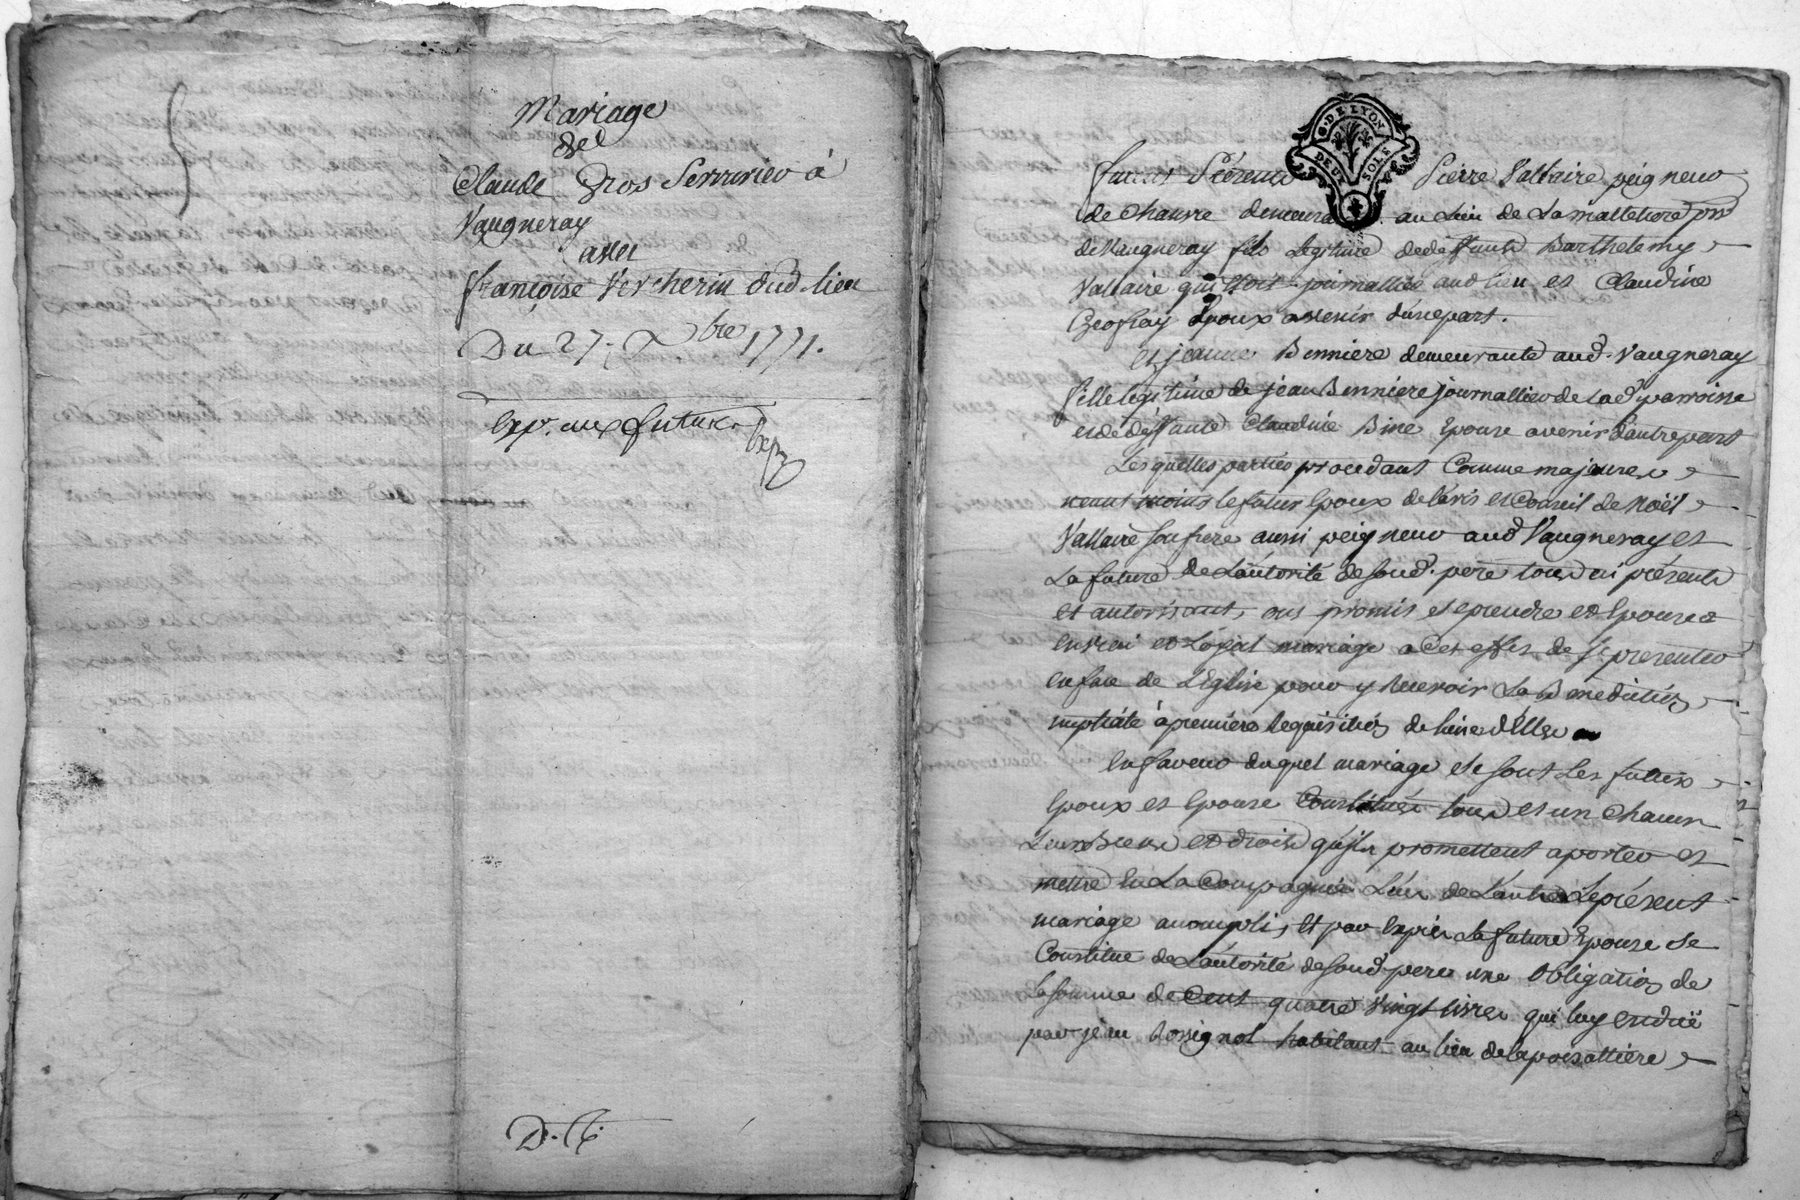 Mariage
de
Claude Gros Serrurier à
Vaugneray
avec
françoise Vercherin dud. lieu
Du 27. 7bre 1771.
Exp. aux futurs
D. C.
G. DE LYON
DEUX SOLS
furent présents Pierre Vallaire peigneur
de chanvre demeurant au lieu de La malletiere psse
de Vaugneray fils Legitime de deffunt Barthelemy
Vallaire qui étoit journallier aud lieu et Claudine
Geofray Epoux avenir d'une part.
et jeanne Bonniere demeurante aud. Vaugneray
fille legitime de jean Bonniere journallier de lad. parroisse
et de deffunte Claudine Bine Epouse avenir d'autre part
Lesquelles parties procedant Comme majeures
neant moins le futur Epoux de l'avis et Conseil de Noël
Vallaire son frere aussi peigneur aud Vaugneray et
La future de L'autorité de sond. pere tous ici présents
et autorisant, ont promis se prendre et Epouser
en vrai et Légal mariage a Cet effet de se presenter
en face de L'Eglise pour y Recevoir La Benediction
nuptiale à premiere Requisition de L'un d'Eux
En faveur duquel mariage se sont Les futurs
Epoux et Epouse Constitués tous et un chacun
Leurs Biens et droits qu'ils promettent aporter et
mettre En La Compagnie L'un de L'autre Le présent
mariage accompli, Et par Exprès La future Epouse se
Constitue de L'autorité de sond. pere une obligation de
La somme de Cent quatre Vingt livres qui luy est due
par jean Rossignol habitant au lieu de la poizattiere